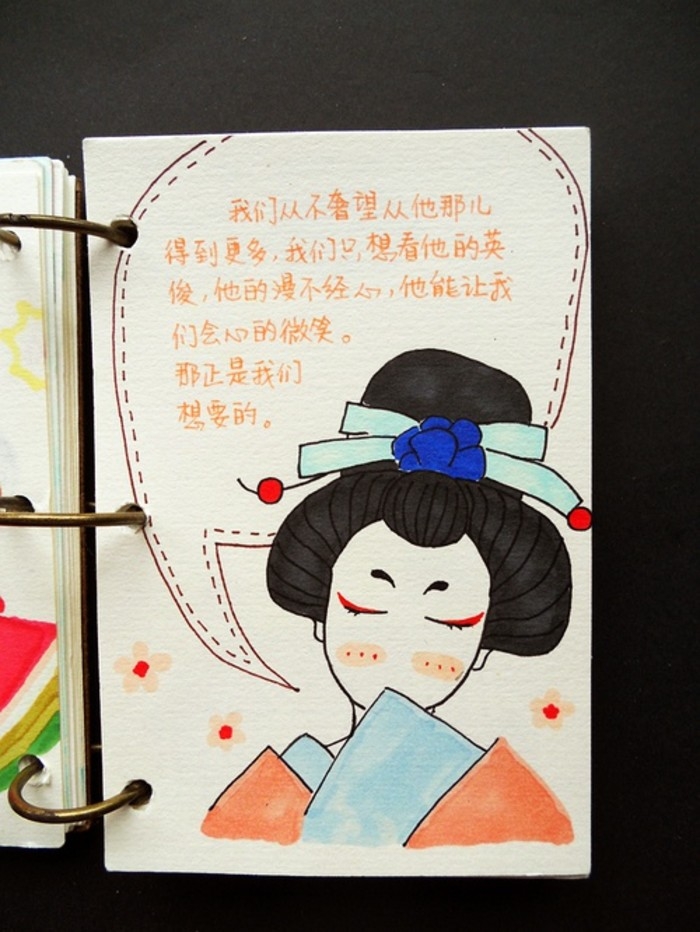 我们从不奢望从他那儿
得到更多,我们只想看他的英
俊,他的漫不经心,他能让我
们会心的微笑。
那正是我们
想要的。